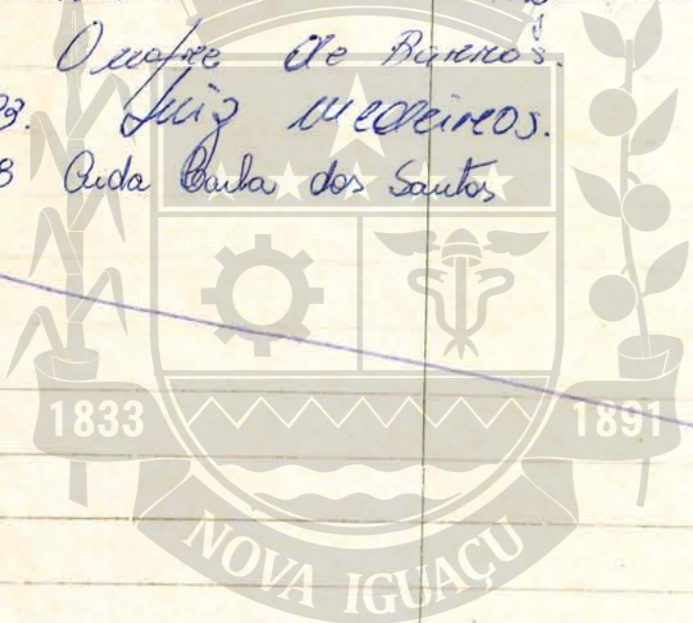 Onofre de Barros.
3. Luiz Medeiros.
8 Aida Carla dos Santos
1833 1891
NOVA IGUAÇU